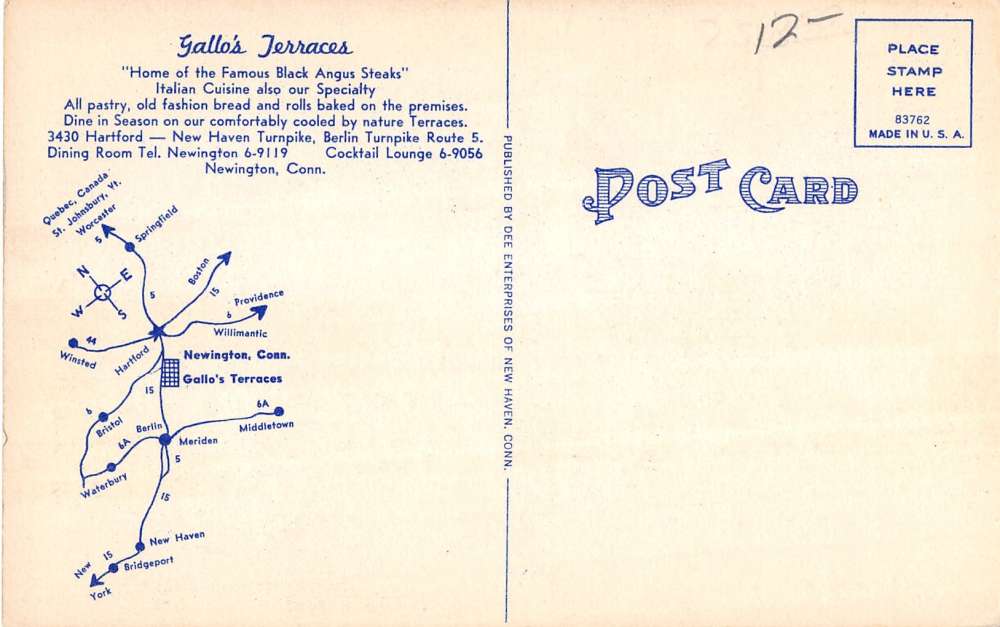 Gallo's Terraces
"Home of the Famous Black Angus Steaks"
Italian Cuisine also our Specialty
All pastry, old fashion bread and rolls baked on the premises.
Dine in Season on our comfortably cooled by nature Terraces.
3430 Hartford — New Haven Turnpike, Berlin Turnpike Route 5.
Dining Room Tel. Newington 6-9119 Cocktail Lounge 6-9056
Newington, Conn.
Quebec, Canada
St. Johnsbury, Vt.
Worcester
5
Springfield
N
E
W
S
5
Boston
15
Providence
6
Willimantic
44
Winsted
Hartford
Newington, Conn.
Gallo's Terraces
15
6
Bristol
Berlin
6A
Middletown
6A
Meriden
5
Waterbury
15
New Haven
15
Bridgeport
New
York
PUBLISHED BY DEE ENTERPRISES OF NEW HAVEN, CONN.
12-
POST CARD
PLACE
STAMP
HERE
83762
MADE IN U. S. A.